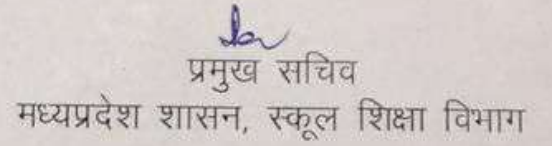 प्रमुख सचिव
मध्यप्रदेश शासन, स्कूल शिक्षा विभाग